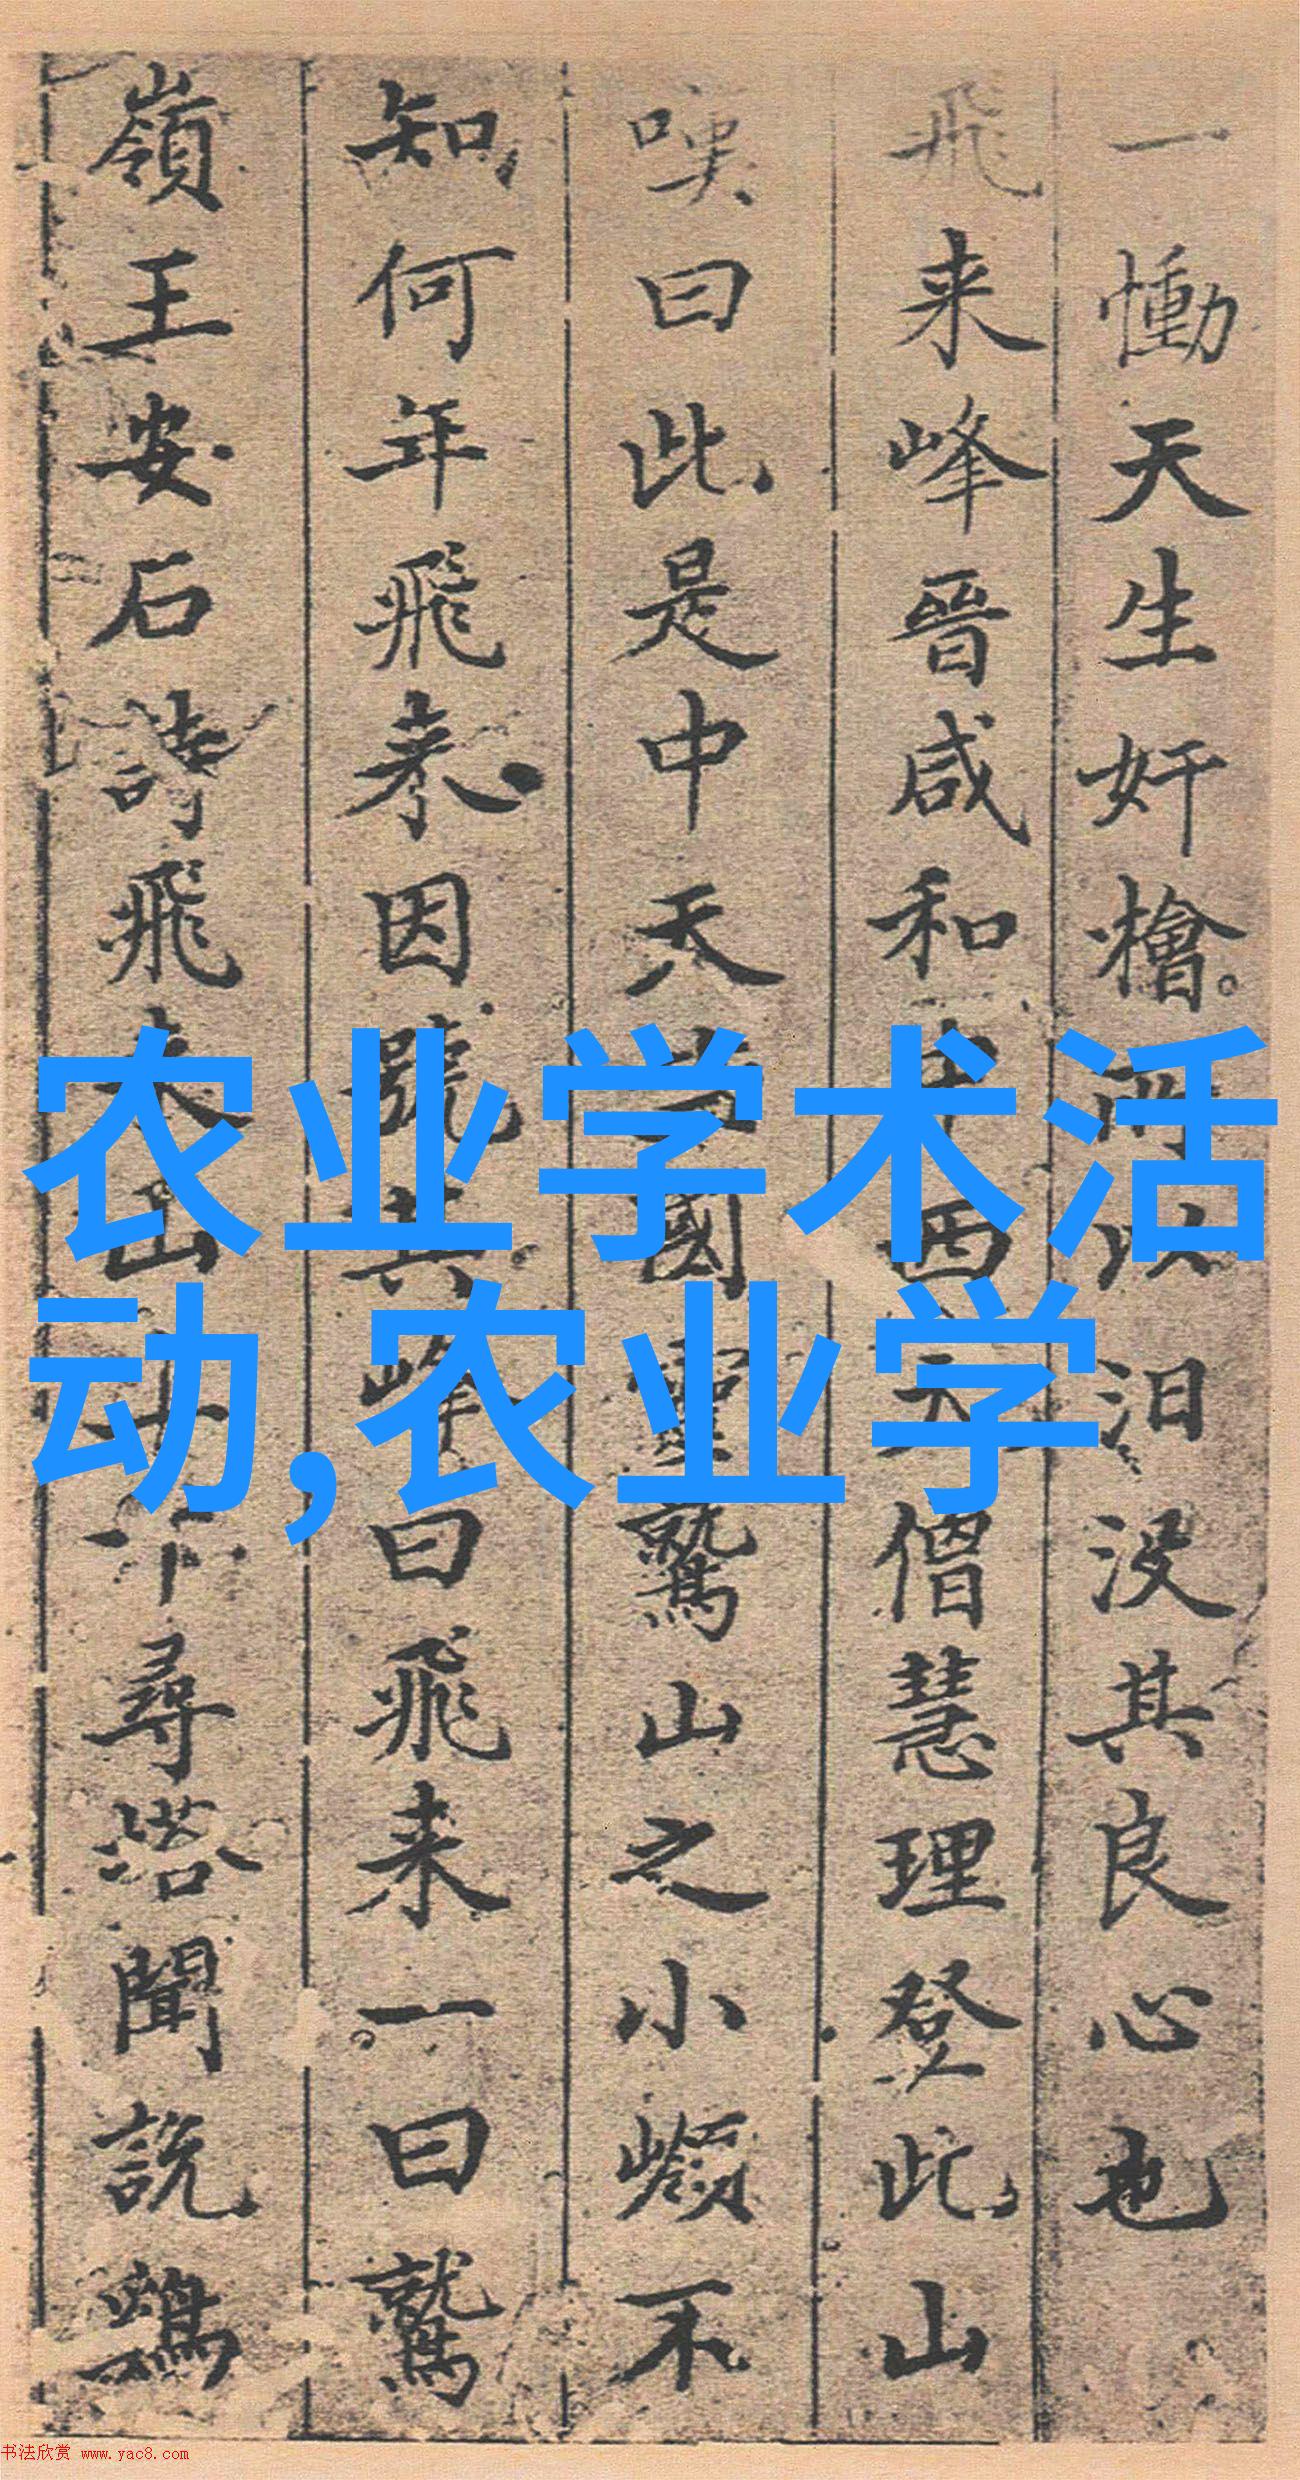 一慟天生奸檜所以汨没其良心也
飛来峰晉咸和中西天僧慧理登此山
嘆曰此是中天竺國靈鷲山之小嶺不
知何年飛来因號其峰曰飛来一曰鷲
嶺王安石詩飛来山上千尋塔聞説鷄
农业学术活
动,农业学
书法欣赏 www.yac8.com